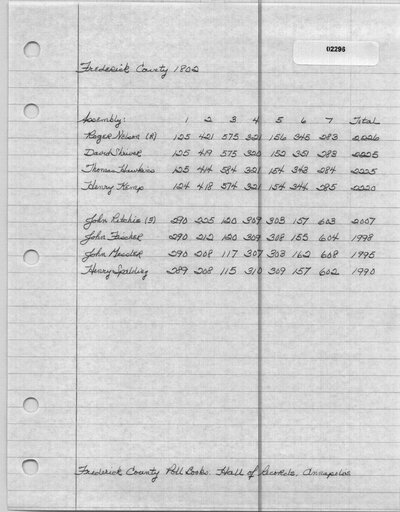 02296
Frederick County 1802
Assembly: 1 2 3 4 5 6 7 Total
Roger Nelson (R) 125 421 575 321 156 345 283 2226
David Shriver 125 419 575 320 152 351 283 2225
Thomas Hawkins 125 414 584 321 154 343 284 2225
Henry Kemp 124 418 574 321 154 344 285 2220
John Ritchie 290 225 120 309 303 157 603 2007
John 290 212 120 309 308 155 604 1998
John 290 208 117 307 303 162 608 1995
Henry Spalding 289 208 115 310 309 157 602 1990
Frederick County Poll Books. Hall of Records, Annapolis